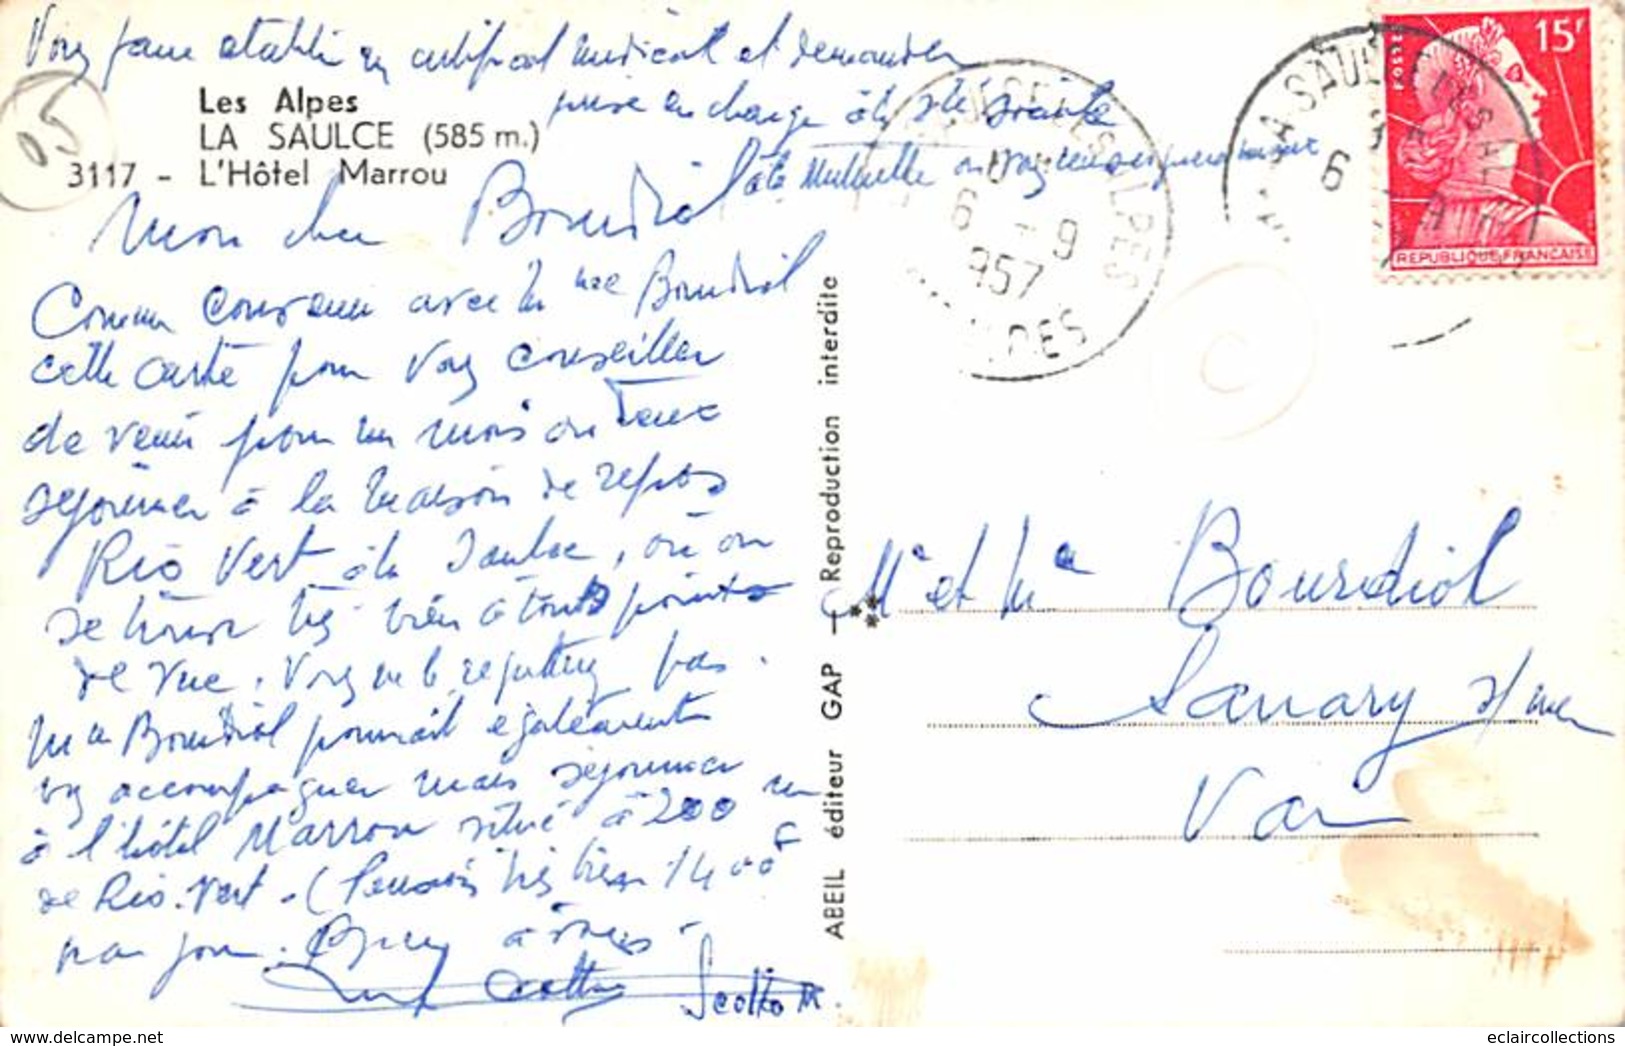 Vous faire établir un certificat médical et demander
prise en charge à la Sté Soiale
à la Mutuelle
05
Les Alpes
LA SAULCE (585 m.)
3117 - L'Hôtel Marrou
Mon cher Bourdiol
Comme convenu avec M me Bourdiol
cette carte pour vous conseiller
de venir pour un mois ou deux
séjourner à la maison de repos
Rio Vert à la Saulce, où on
se trouve très bien à touts points
de vue. Vous ne le regretterez pas.
M me Bourdiol pourrait également
vous accompagner mais séjourner
à l'hôtel Marrou situé à 200 m
de Rio-Vert. (Pension très bien 1400 F
par jour. à vous.
Scotto M.
ABEIL éditeur GAP - Reproduction interdite
6 - 9
957
ALPES
LA SAULCE
6
15F
POSTES
REPUBLIQUE FRANCAISE
C
Mr et Me Bourdiol
Sanary s/mer
Var
eclaircollections